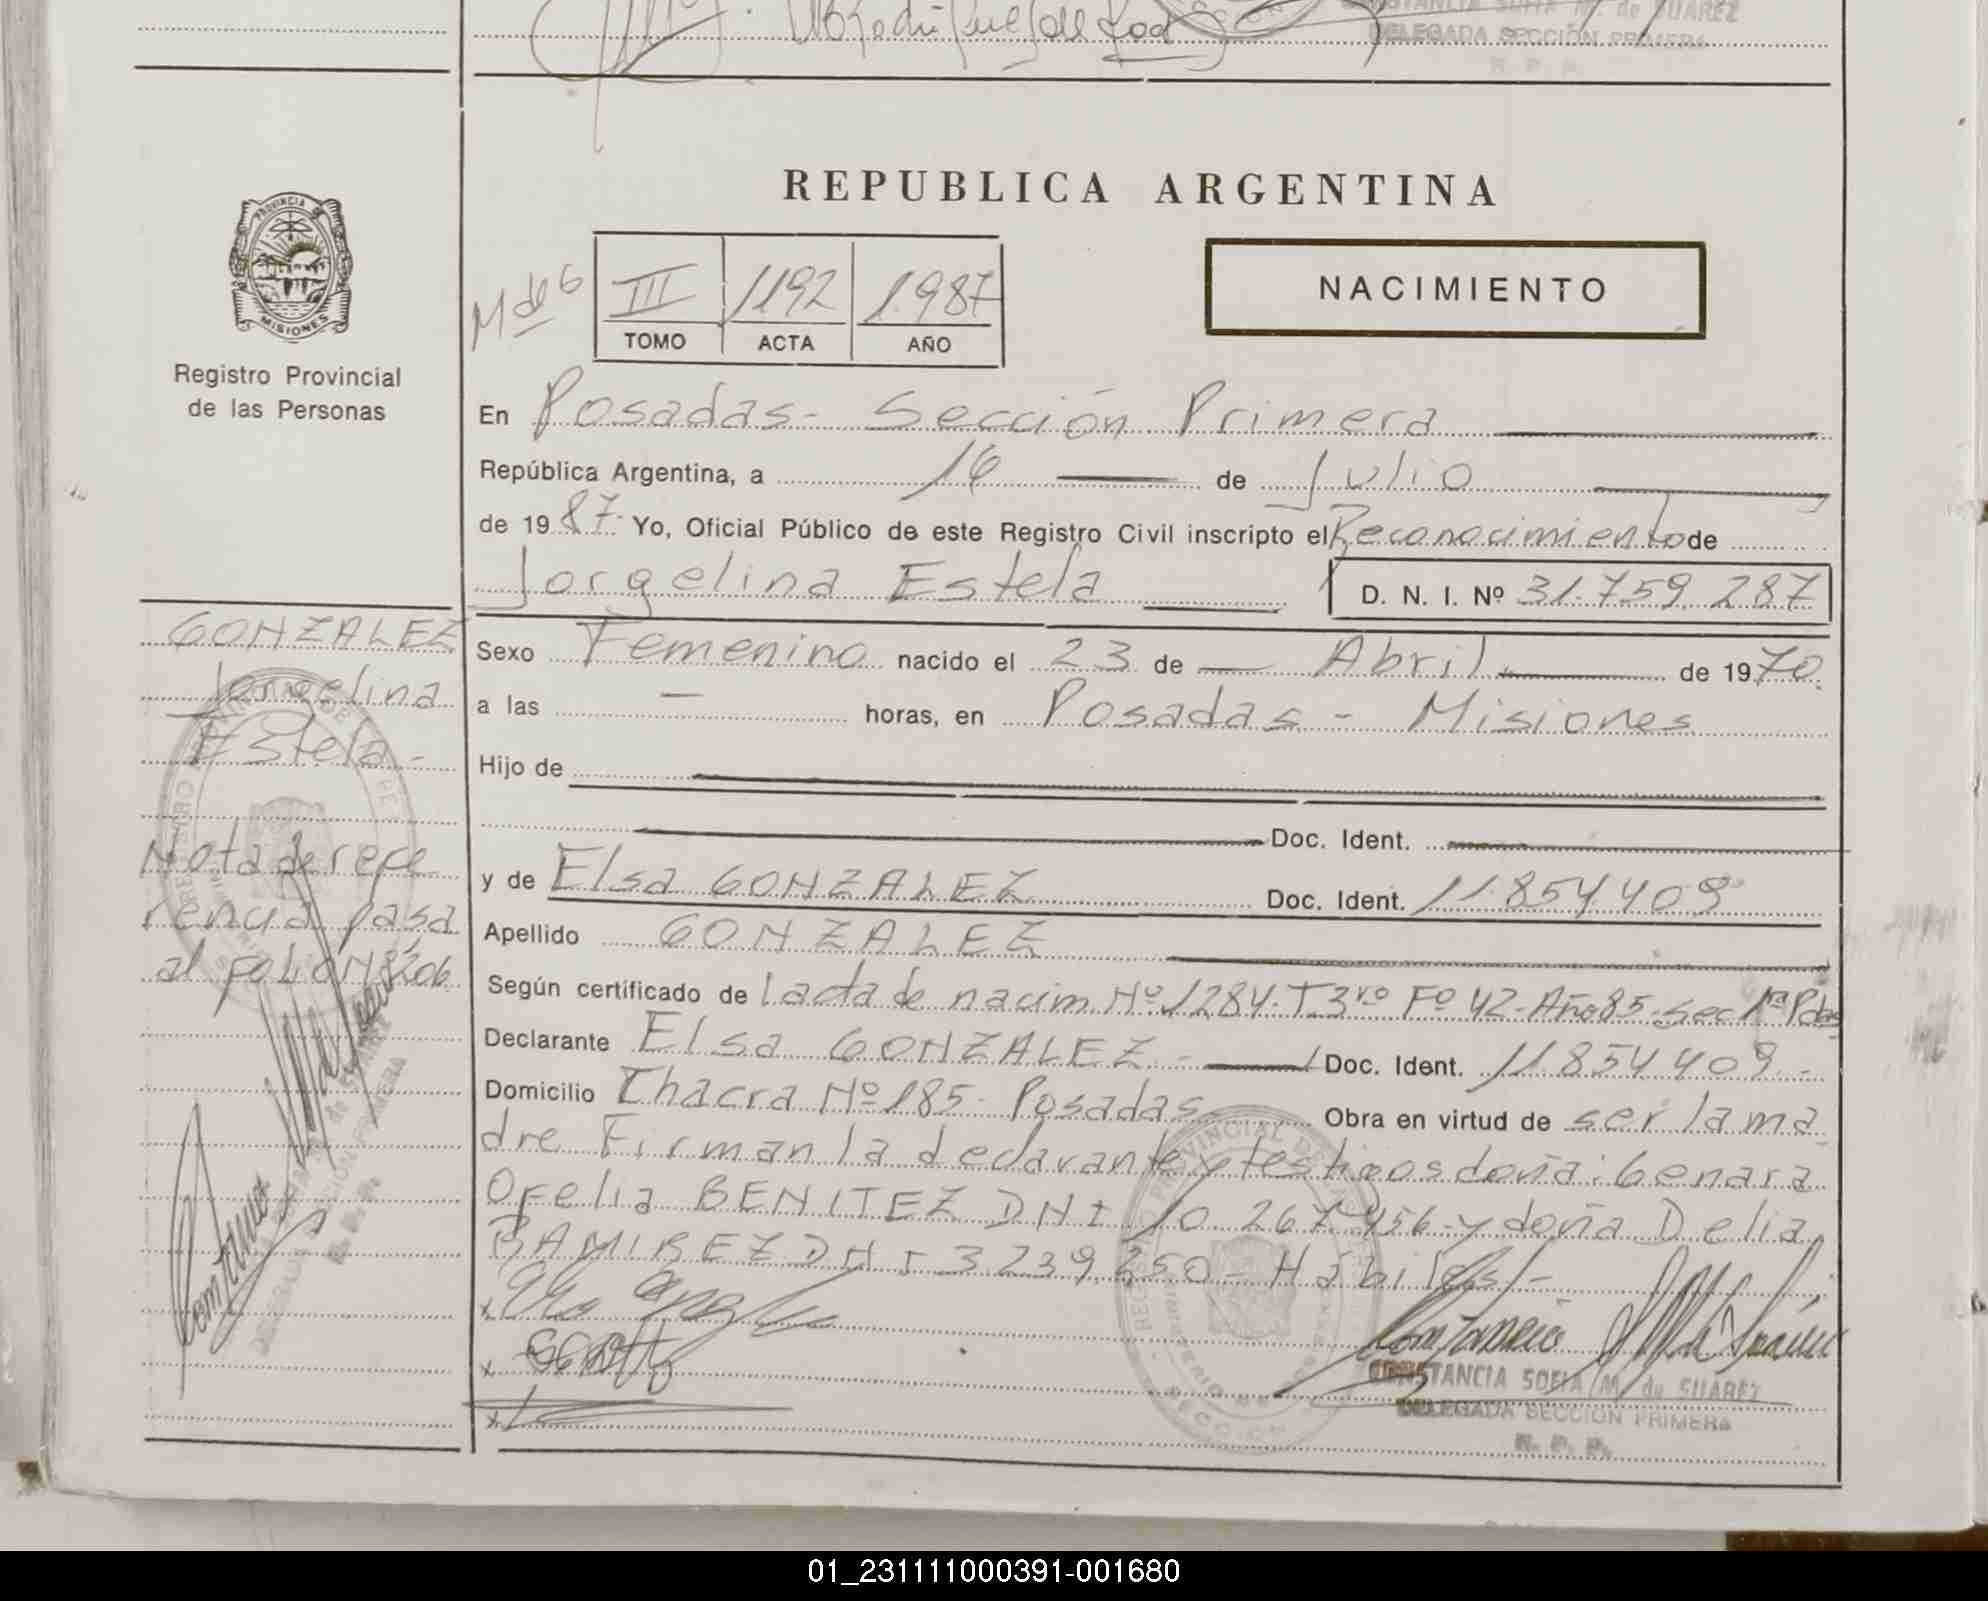 CONSTANCIA SOFIA M. de SUAREZ
DELEGADA SECCIÓN PRIMERA
R. P. P.
REPUBLICA ARGENTINA
PROVINCIA DE
MISIONES
Registro Provincial
de las Personas
M de 6
III 1192 1.987
TOMO ACTA AÑO
NACIMIENTO
En Posadas - Sección Primera
República Argentina, a 16 de Julio
de 1987. Yo, Oficial Público de este Registro Civil inscripto el Reconocimiento de
Jorgelina Estela D. N. I. Nº 31.759.287
Sexo Femenino nacido el 23 de Abril de 1970.
a las - horas, en Posadas - Misiones
Hijo de
Doc. Ident.
y de Elsa GONZALEZ Doc. Ident. 11.854.409
Apellido GONZALEZ
Según certificado de l acta de nacim. Nº 1284. T 3ro Fº 42. Año 85. Sec 1ª Pdas
Declarante Elsa GONZALEZ - Doc. Ident. 11.854.409.-
Domicilio Chacra Nº 185 - Posadas Obra en virtud de ser la ma
dre Firman la declarante y testigos doña: Genara
Ofelia BENITEZ DNI 10.267.456 - y doña Delia
RAMIREZ DNI 3239.250 - Habiles/-
CONSTANCIA SOFIA M. de SUAREZ
DELEGADA SECCION PRIMERA
R. P. P.
GONZALEZ
Jorgelina
Estela -
Nota de refe
rencia pasa
al FOLIO Nº 206
01_231111000391-001680